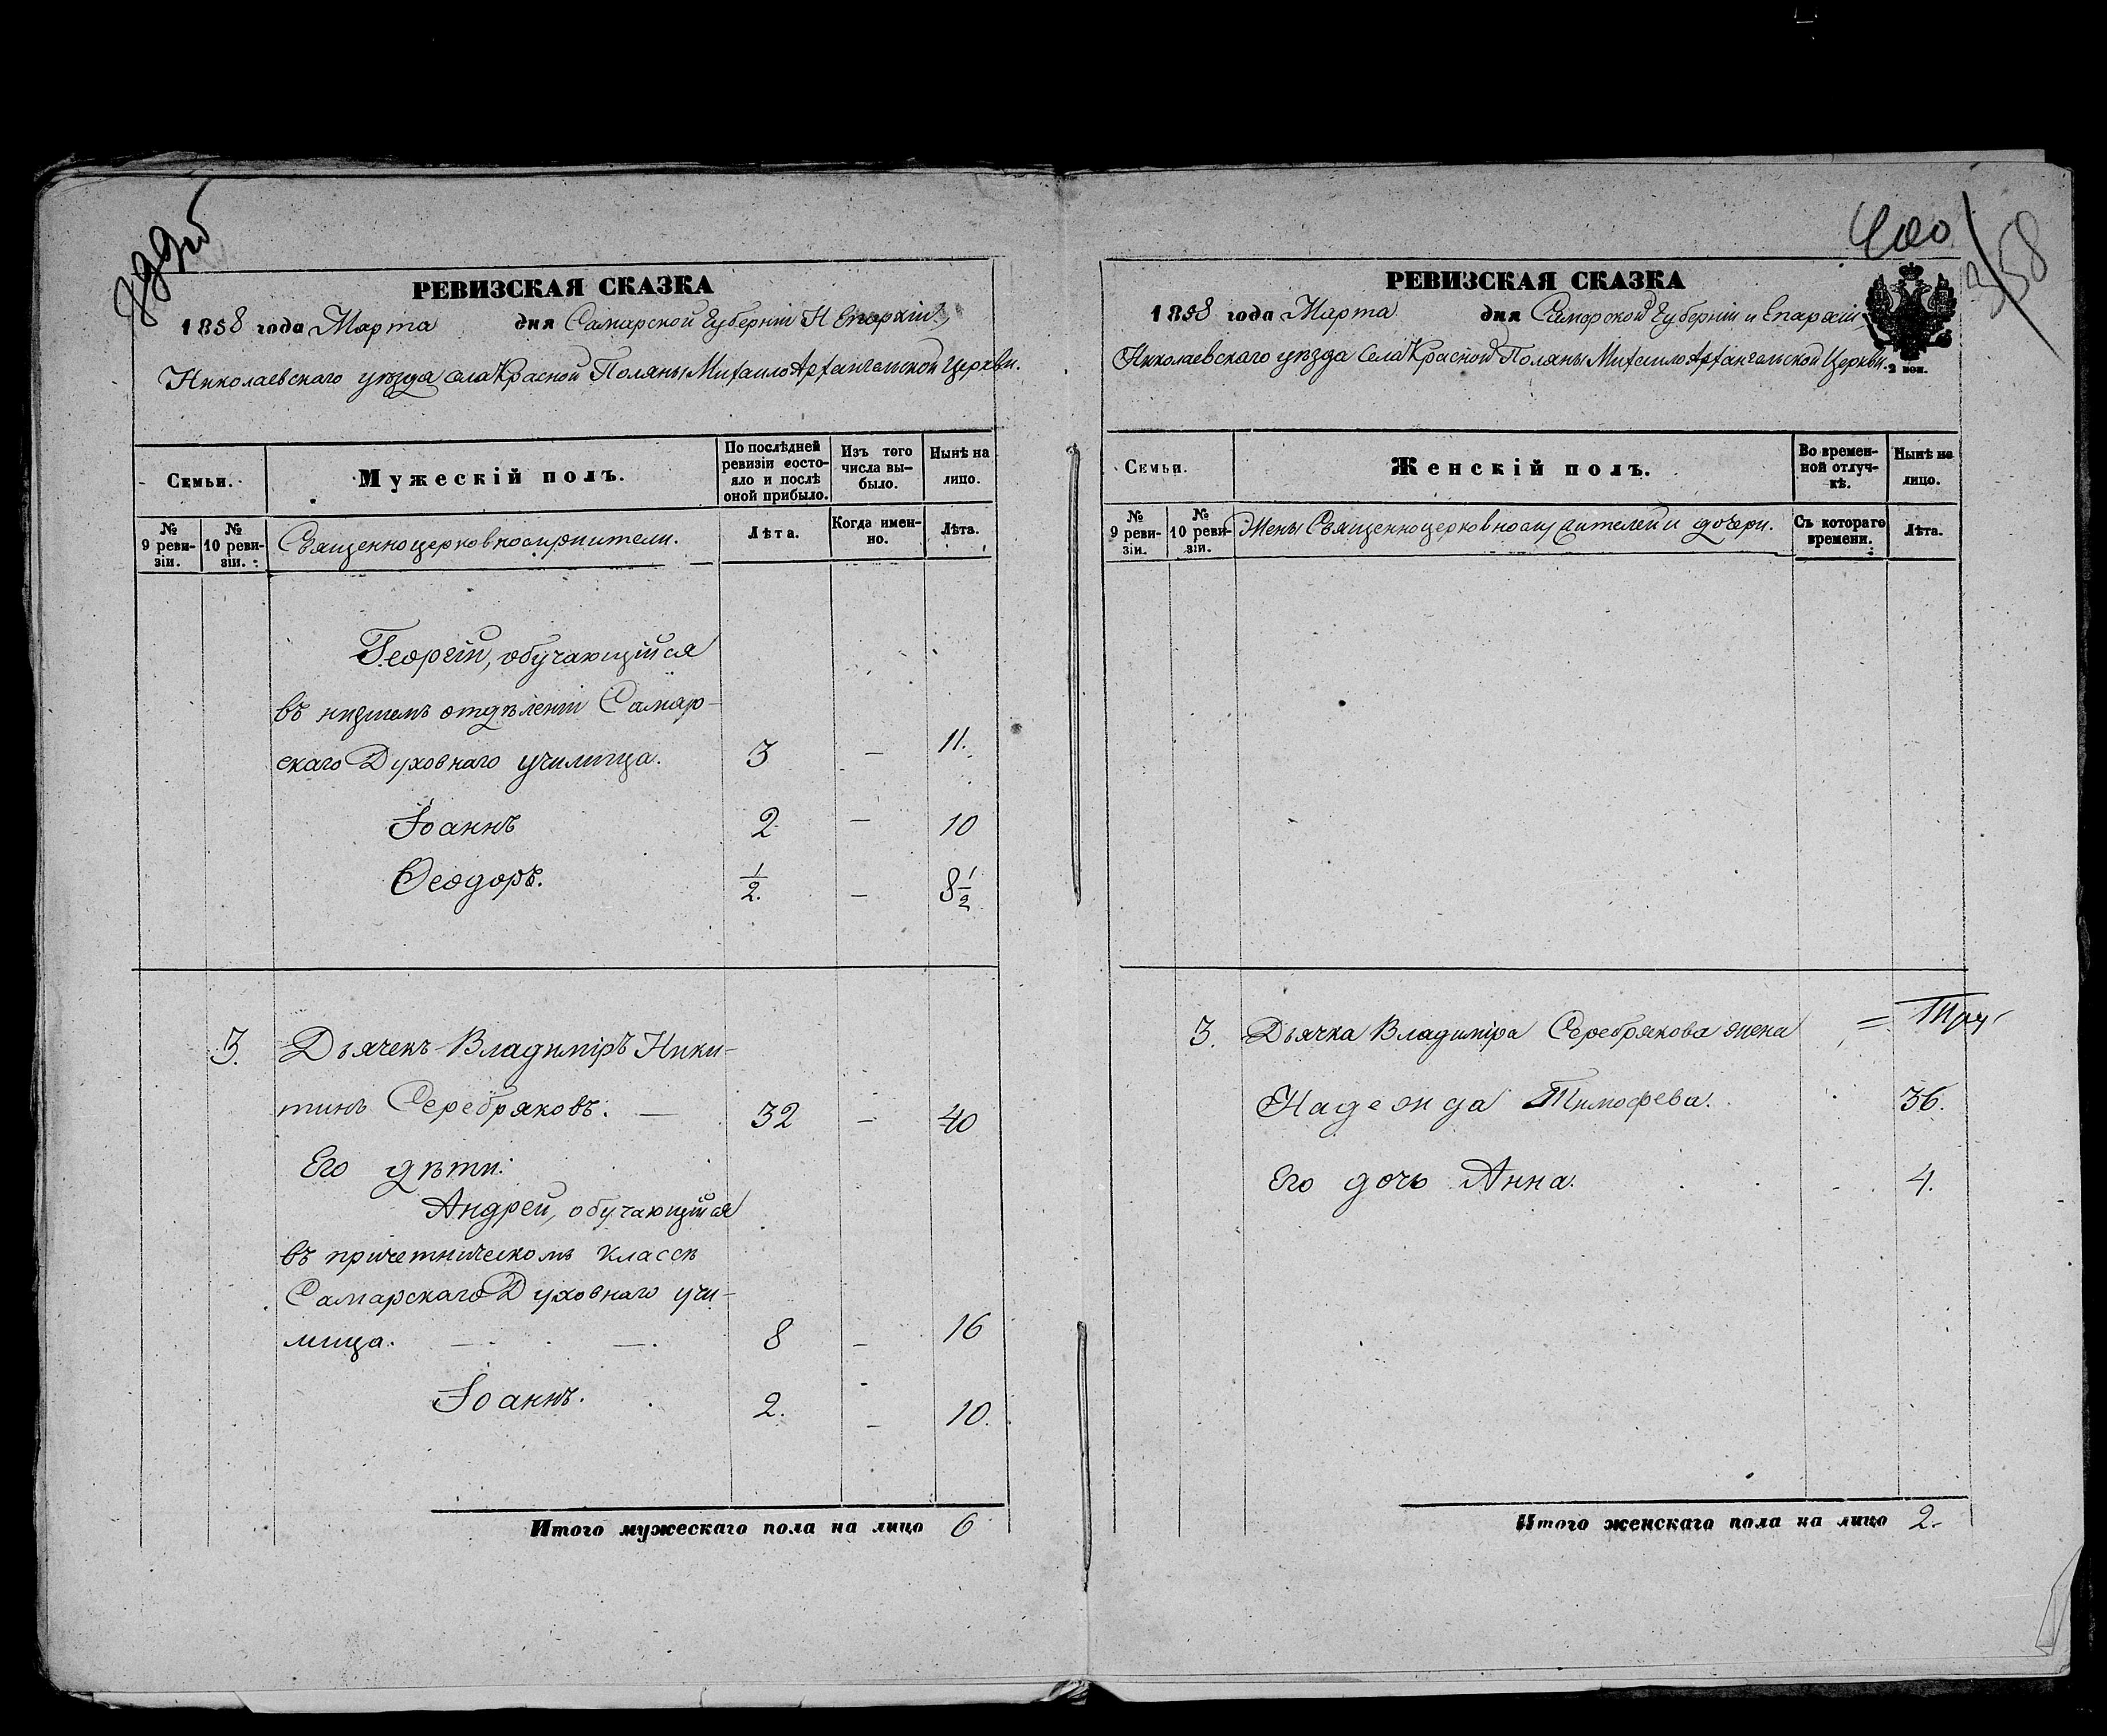 РЕВИЗСКАЯ СКАЗКА
1858 года Марта дня Самарской Губерніи И Епархіи,
Николаевскаго уѣзда села Красной Поляны Михаило Архангельской Церкви.
Семьи.
Мужескій полъ.
По послѣдней ревизіи состояло и послѣ оной прибыло.
Изъ того числа выбыло.
Нынѣ на лицо.
№ 9 ревизіи.
№ 10 ревизіи.
Священноцерковнослужители.
Лѣта.
Когда именно.
Лѣта.
Георгій, обучающійся
въ низшемъ отдѣленіи Самар-
скаго Духовнаго училища. 3 — 11.
Іоаннъ 2 — 10
Ѳеодоръ. 1/2. — 8 1/2
3. Дьячекъ Владиміръ Ники-
тинъ Серебряковъ. — 32 — 40
Его дѣти:
Андрей, обучающійся
въ причетническомъ классѣ
Самарскаго Духовнаго учи-
лища. — — 8 — 16
Іоаннъ. 2. — 10.
Итого мужескаго пола на лицо 6
400
358
РЕВИЗСКАЯ СКАЗКА
1858 года Марта дня Самарской Губерніи и Епархіи
Николаевскаго уѣзда села Красной Поляны Михаило Архангельской Церкви.
2 коп.
Семьи.
Женскій полъ.
Во временной отлучкѣ.
Нынѣ на лицо.
№ 9 ревизіи.
№ 10 ревизіи.
Жены Священноцерковнослужителей и дочери.
Съ котораго времени.
Лѣта.
3. Дьячка Владиміра Серебрякова жена
Надежда Тимофева. 36.
Его дочь Анна. 4.
Итого женскаго пола на лицо 2.